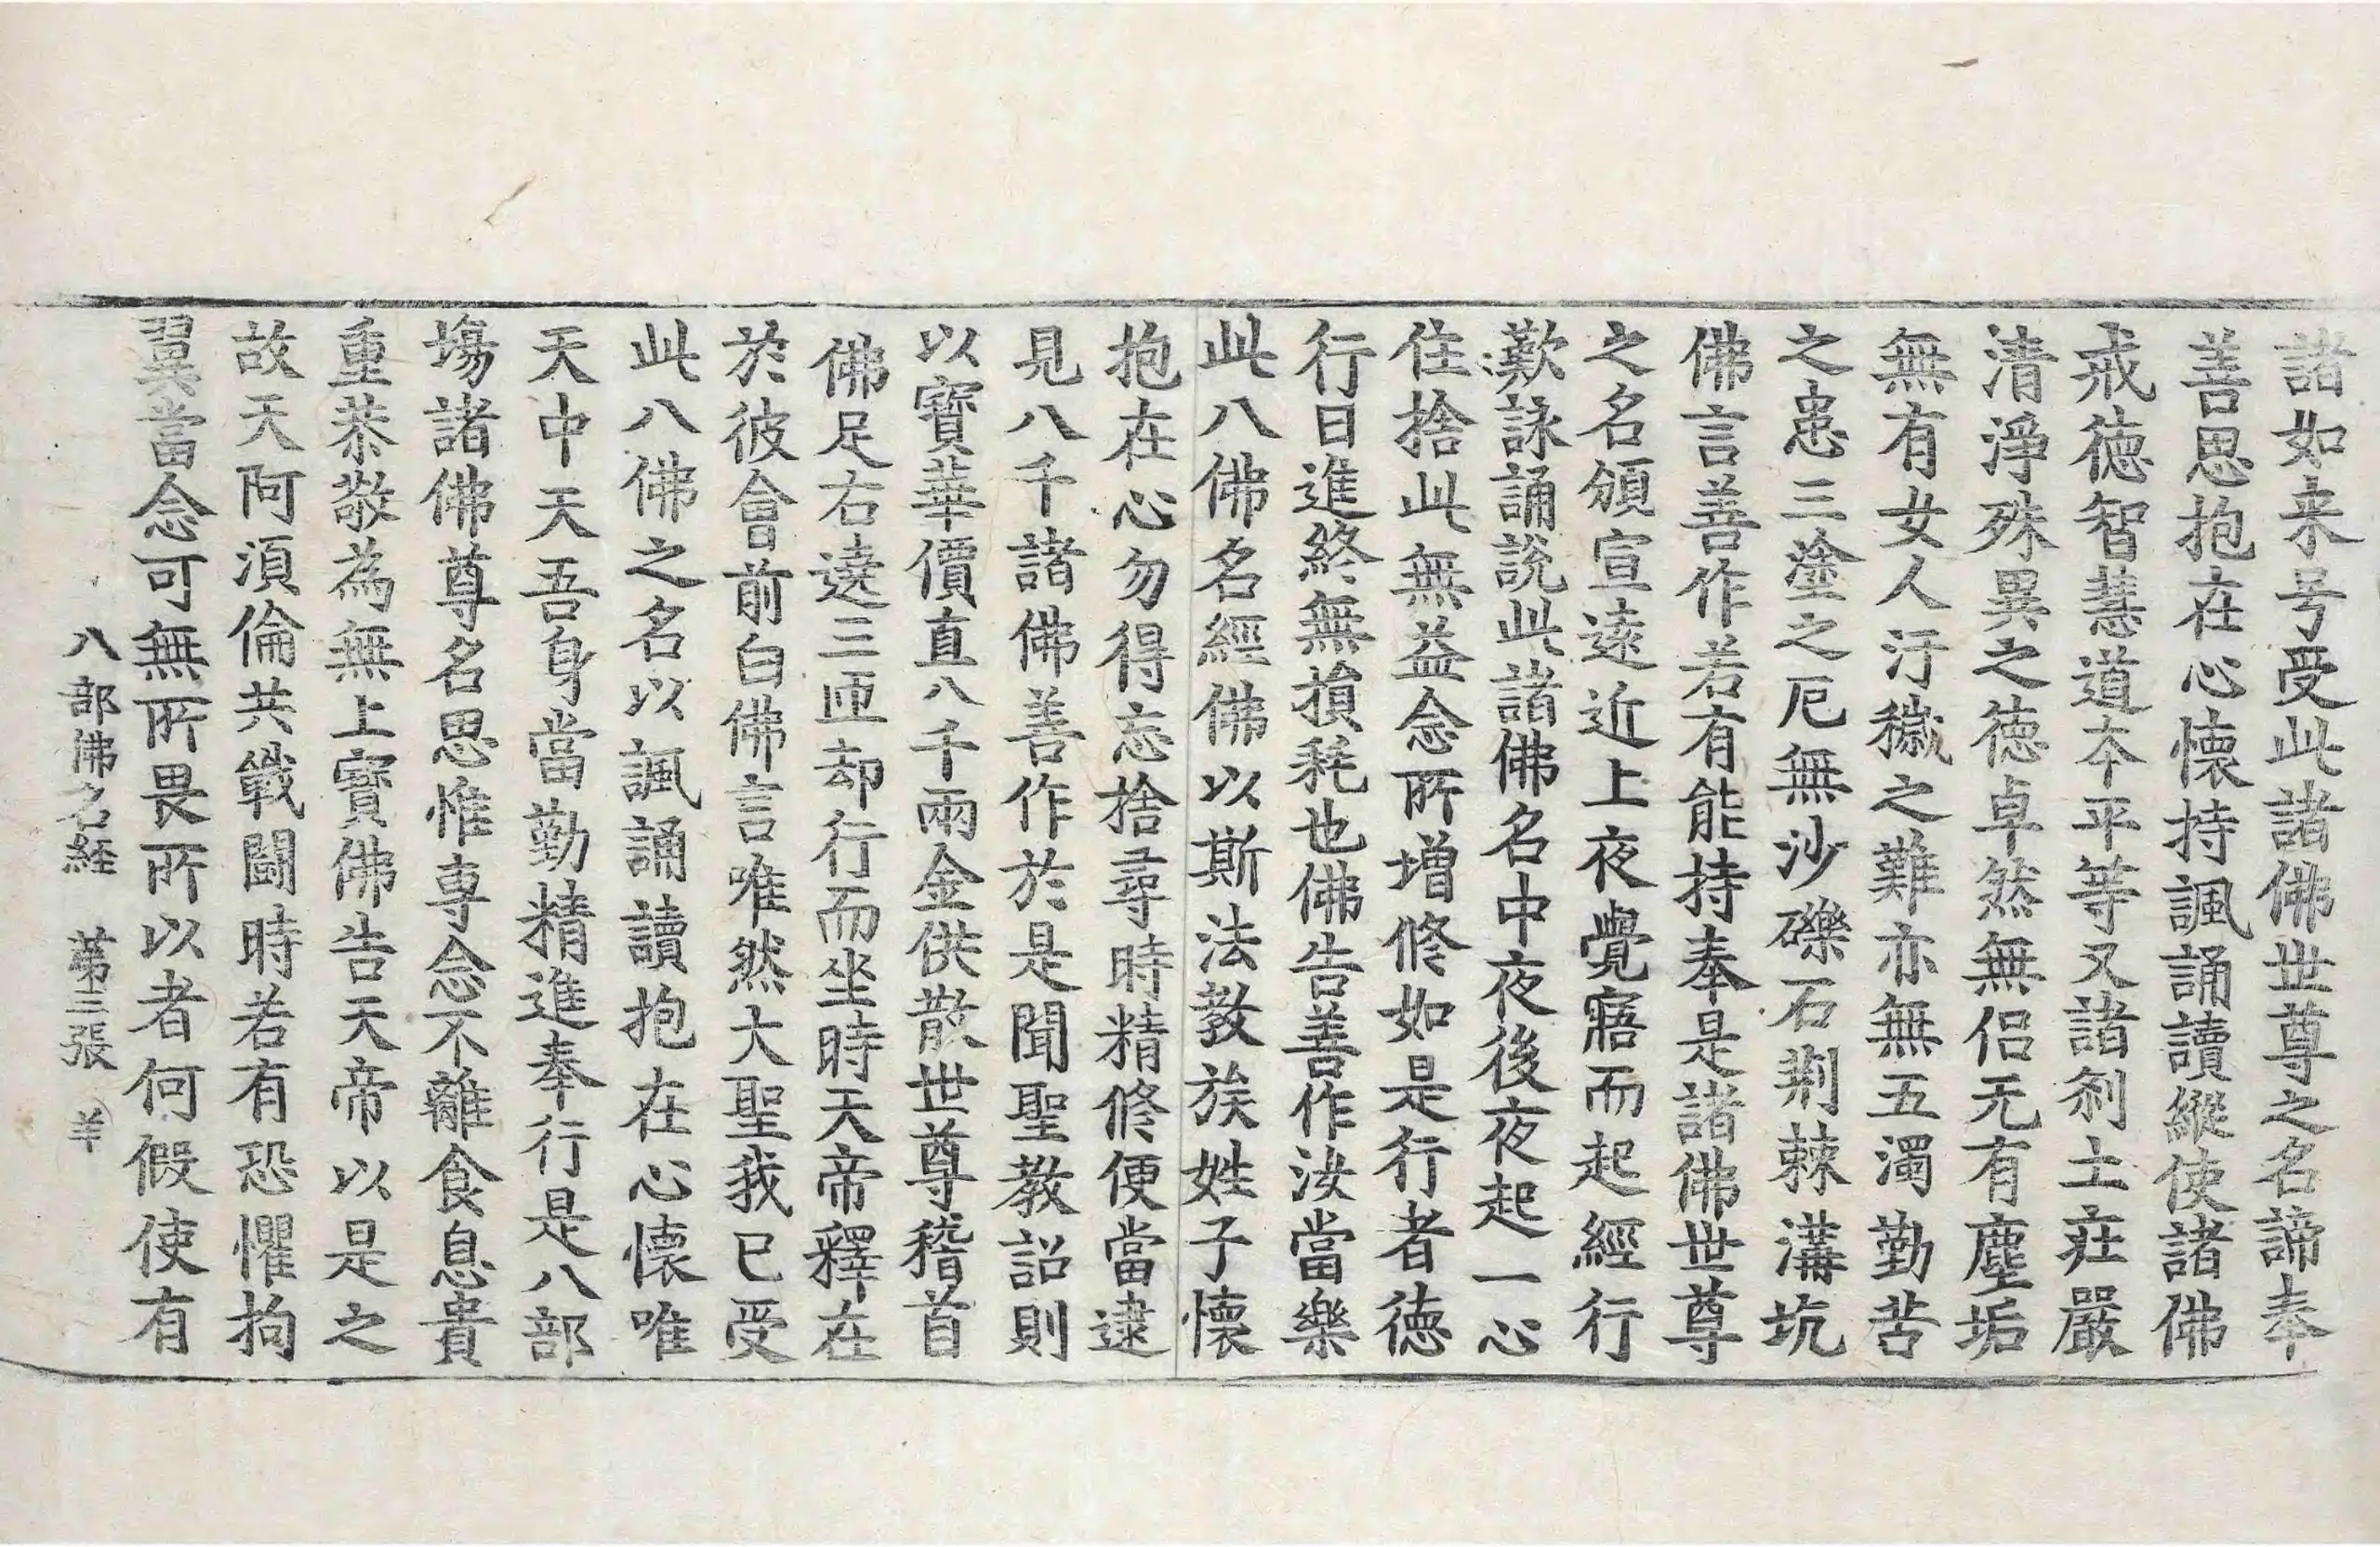 諸如来号受此諸佛世尊之名諦奉
善思抱在心懷持諷誦讀縱使諸佛
戒徳智慧道本平等又諸刹土莊嚴
清淨殊異之徳卓然無侶无有塵垢
無有女人汙穢之難亦無五濁勤苦
之患三塗之厄無沙礫石荆棘溝坑
佛言善作若有能持奉是諸佛世尊
之名頒宣遠近上夜覺寤而起經行
歎詠誦說此諸佛名中夜後夜起一心
住捨此無益念所增修如是行者徳
行日進終無損耗也佛告善作汝當樂
此八佛名經佛以斯法教族姓子懷
抱在心勿得忘捨尋時精修便當逮
見八千諸佛善作於是聞聖教詔則
以寶華價直八千兩金供散世尊稽首
佛足右遶三匝却行而坐時天帝釋在
於彼會前白佛言唯然大聖我已受
此八佛之名以諷誦讀抱在心懷唯
天中天吾身當勤精進奉行是八部
塲諸佛尊名思惟專念不離食息貴
重恭敬為無上寶佛告天帝以是之
故天阿須倫共戰鬪時若有恐懼拘
翼當念可無所畏所以者何假使有
八部佛名経 苐三張 羊